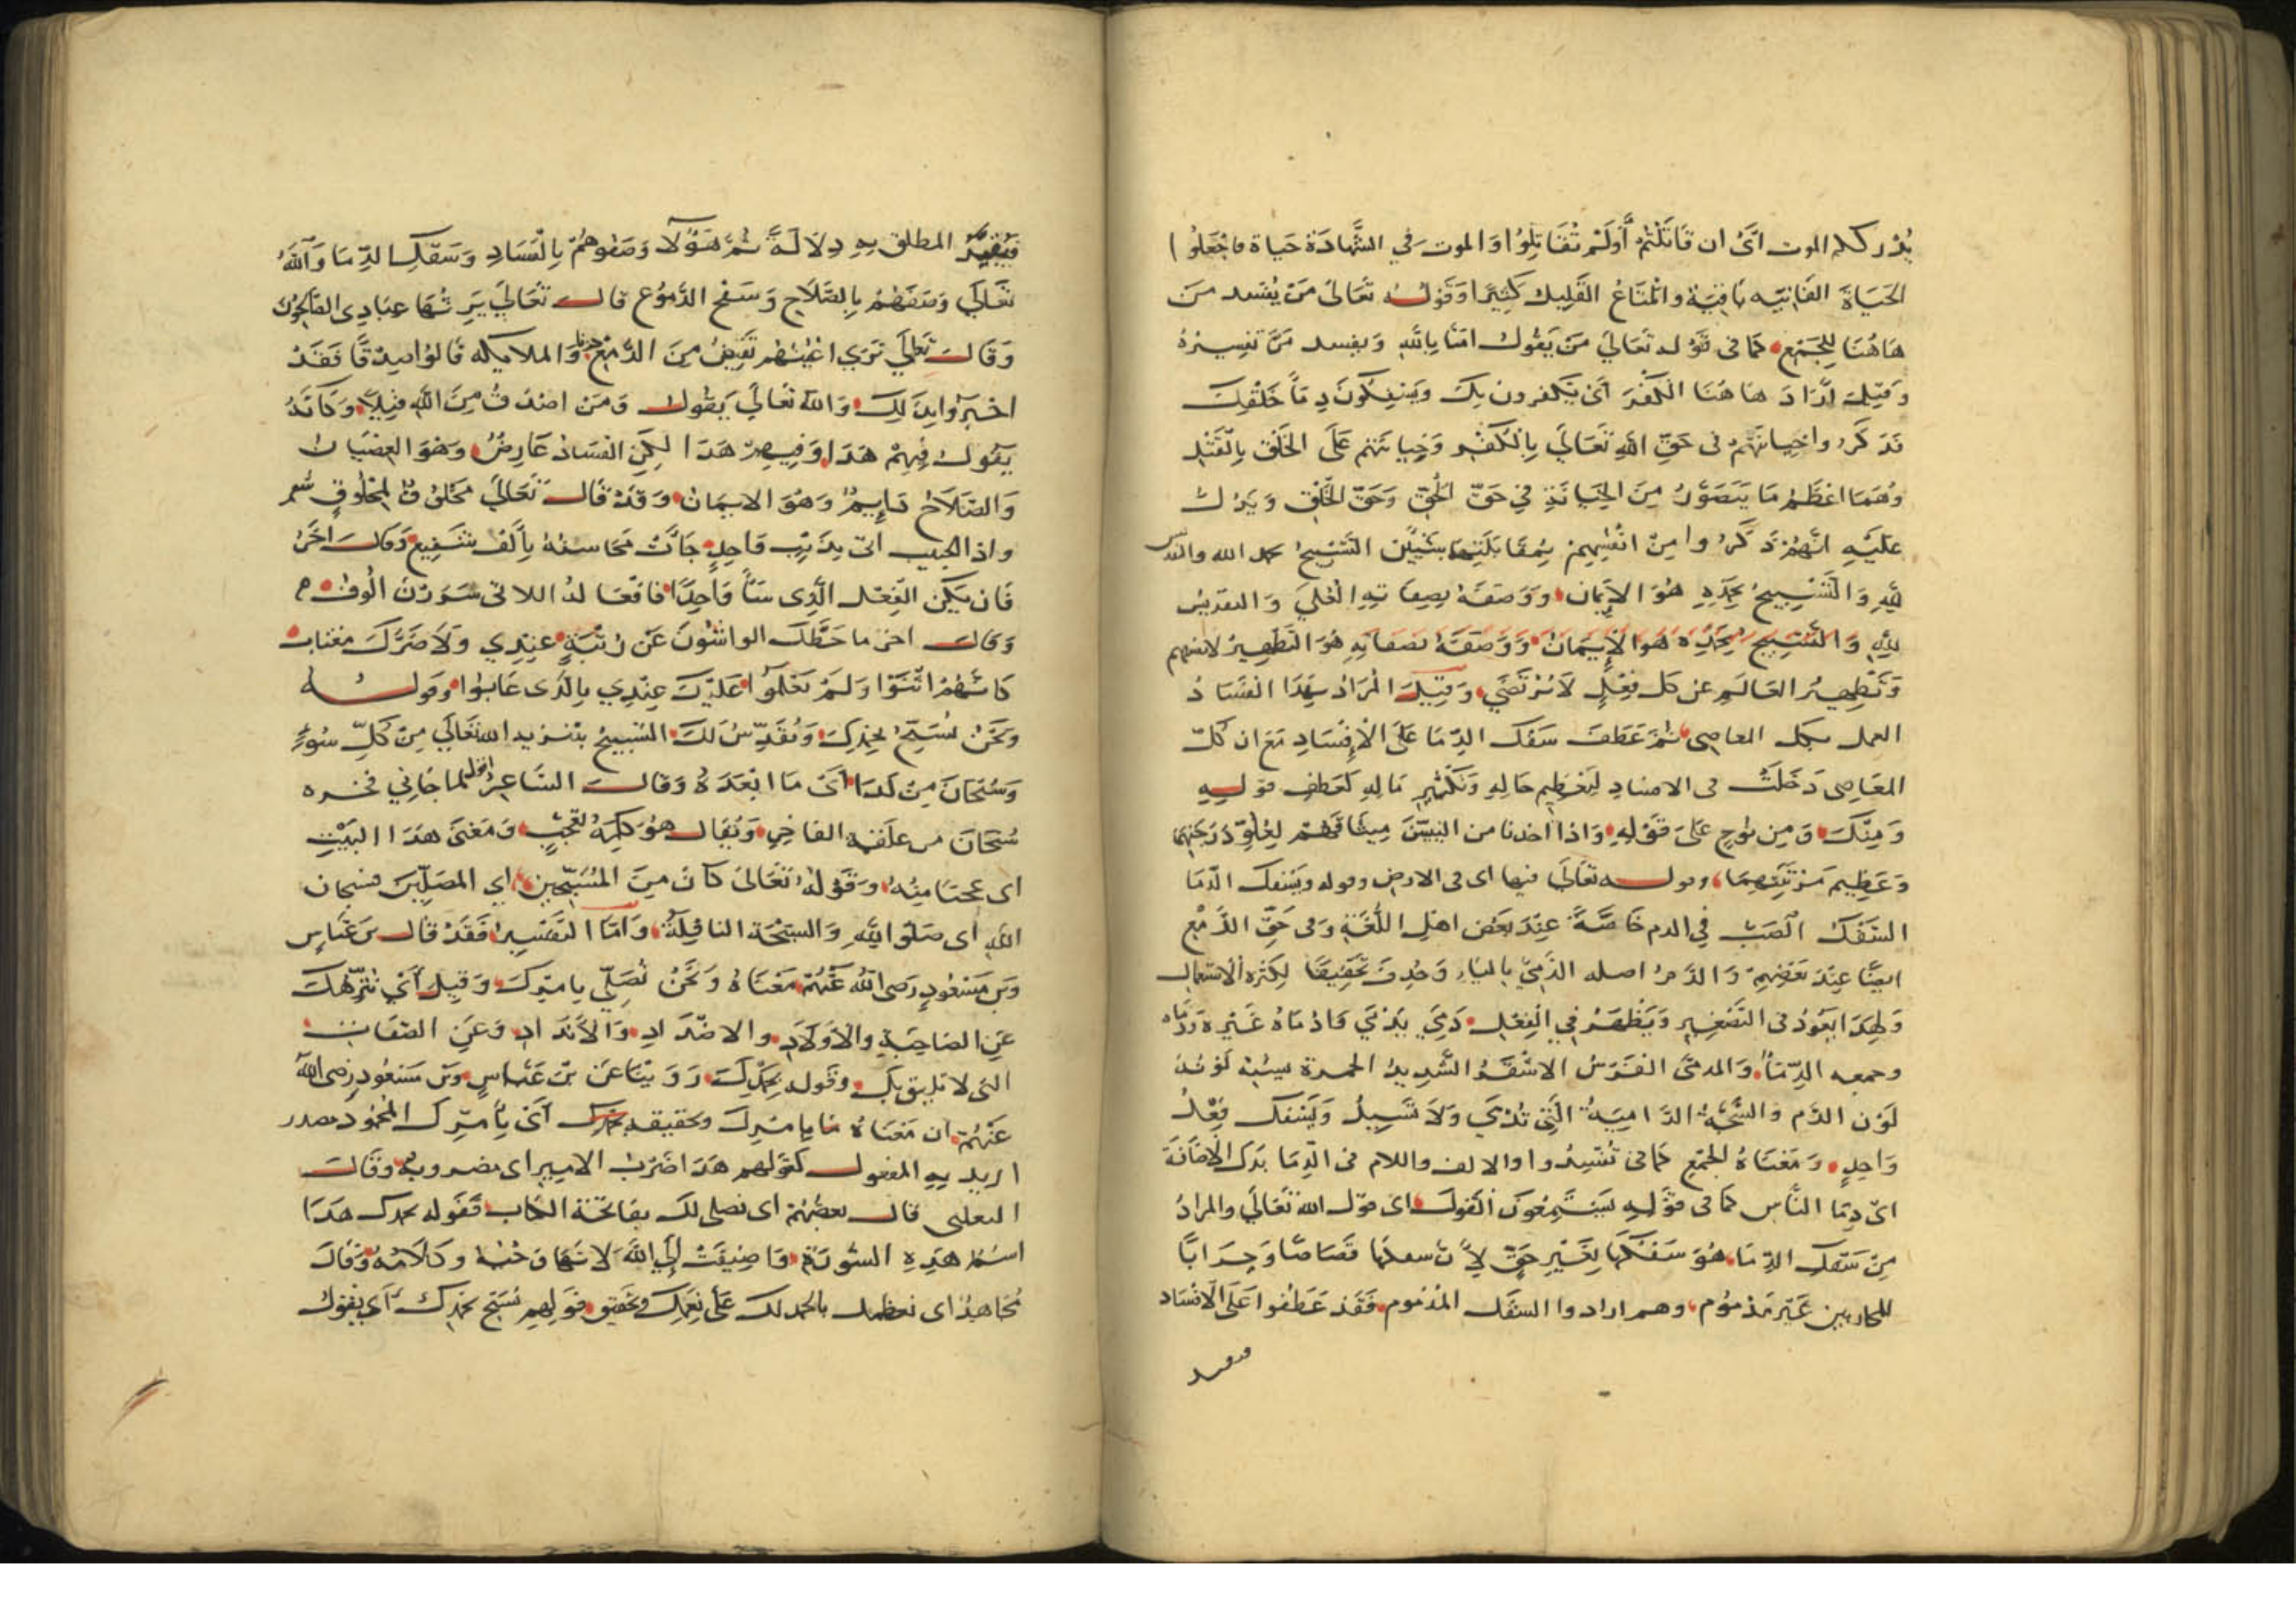 يُدْرككم الموت اَىْ ان قَاتَلْتُمْ أَوْلَمْ تُقَاتِلُوا وَالموت في الشَّهَادَة حَيَاة فاجْعَلُوا
الحَيَاةَ الفَانِيَه بَاقِيَة والمْتَاعُ القَلِيل كَثِيرًا وَقَوْلُهُ تَعَالىَ مَنْ يُفْسد مَنْ
هَاهُنَا لِلْجَمْعِ كَمَا فى قَوْله تَعَالىَ مَنْ يَقُول امَنَّا بِاللهِ وَيفسد مَرَّ تَفْسِيرُهُ
وَقِيلَ اَرَادَ هَاهُنَا الْكُفْرَ اَىْ يَكفرون بِكَ وَيَسْفِكُونَ دِمَآ خَلْقِكَ
فَذَكَرُوا خِيانَتَهُمْ فى حَقِّ اللهِ تَعَالَى بِالْكُفْرِ وَخِيانَتهم عَلَى الخَلْقِ بِالْقَتْلِ
وهُمَا اعْظَمُ مَا يَتَصَوَّرُ مِنَ الخِيَانَةِ فِي حَقِّ الْحَقِّ وَحَقِّ الخَلْقِ وَيَدُل
عَلَيْهِ انَّهُمْ ذَكَرُوا مِنْ انْفُسِهِمْ بِمُقَابَلَتِهِمَا شَيْئَيْنِ التَّسْبِيحُ بحمد الله والتقديس
لِلّهِ وَالْتَسْبِيحُ بِحَمْدِهِ هُوَ الاِيمَان وَوَصَفَهُ بِصِفَاتِهِ الْعُلَى وَالتقديس
لِلّهِ وَالْتَسْبِيحُ بِحَمْدِهِ هُوَ الاِيمَان وَوَصَفَهُ بصفاتِهِ هُوَ التَطْهِيرُ لانفسهم
وَتَطْهِيرُ العَالَمِ عن كل فِعْلٍ لَا يُرْتَضَى وَقِيلَ الْمُرَادُ بِهَذَا الْفَسَادُ
العمل بكل المعاصى ثُمَّ عَطَفَ سَفْكَ الدِّمَا عَلَى الْاِفْسَادِ مَعَ ان كُلَّ
المَعَاصِى دَخَلَتْ فى الافساد لِتَعْظِيمِ حَالِهِ وَتَكْثِيرِ مَالِهِ كعَطْفِ قَوْلِهِ
وَمِنْكَ وَمِن نُوحٍ عَلَى قَوْلِهِ وَاِذْ اخذنا من النبيّنَ مِيثَاقَهُمْ لِعُلُوِّ دَرَجَتِهِمَا
وَعَظِيمِ مَرْتَبَتِهِمَا وقوله تعَالَى فيها اى فى الارض وقوله ويَسْفك الدّمَا
السَّفْكُ الصَّبُّ فِي الدم خَاصَّةً عِنْدَ بَعْض اهْلِ اللُّغَةِ وَفى حَقِّ الدَّمْعِ
ايضًا عِنْدَ بَعْضِهِمْ وَالدَّمُ اصله الدَّمْيُ بِالْيَاءِ وَحُذِفَ تَخْفِيفًا لِكَثْرَةِ الاستعمال
وَلِهَذَا يَعُودُ فى التَّصْغِيرِ وَيَظْهَرُ فِي الْفِعْلِ دَمِيَ يَدْمَي وَاَدْمَاهُ غَيْره وَدَمَّاه
وجمعه الدِّمَا وَالمدمَّى الفَرَسُ الاشْقَرُ الشَّدِيدُ الحمرة يشبه لَوْنُهُ
لَوْن الدَّم وَالشَّجَّةُ الدَّامِيَةُ الَّتِي تَدْمَى وَلاَ تَسِيلُ وَيَسْفك فِعْلُ
وَاحِدٍ وَمَعْنَاهُ الجَمْعِ كَمَا فى تُفْسِدُوا والالف واللام فى الدِّمَا بَدَل الاِضَافَةِ
اىّ دِمَا النَّاسِ كمَا فى قَوْلِهِ يَسْتَمِعُونَ الْقَوْلَ اى قول الله تَعَالَى والمرادُ
مِنْ سَفْكِ الدِّمَا هُوَ سَفْكهَا بِغَيْرِ حَقٍّ لِأَنَّ سفكها قَصَاصًا وَحِرَابًا
للمحاربين غَيْر مَذمُوم وهم ارادوا السفك المذموم فَقَدْ عَطَفُوا عَلَى الاِفْسَاد
فيفيد
فَيُفِيدُ المطلق بِهِ دِلاَلَةً ثمَّ هَؤُلآ وَصَفُوهُمْ بِالْفَسَادِ وَسَفْكِ الدِّمَا وَاللهُ
تَعَالَى وَصَفَهُمْ بِالصَّلَاحِ وَسَفْحِ الدُّمُوعِ قال تَعَالَى يَرِثُهَا عِبَادِى الصَّالِحُونَ
وَقَالَ تَعَالَى تَرَى اعْيُنَهُم تَفِيضُ مِنَ الدَّمْعِ حزنا وَالملايكه قَالُوا صِدْقًا فَقَدْ
اخْبَرُوا بِذَلِكَ وَاللهُ تَعَالَى يَقُول وَمَن اصْدَقُ مِنَ اللهِ قِيلًا وَكَانَهُ
يَقُول فِيهِمْ هَذَا وَفِيهِمْ هَذَا لَكِنِ الفسَادُ عَارِضٌ وَهُوَ العِصْيَان
وَالصَّلَاحُ دَايِمٌ وَهُوَ الايمَان وَقَدْ قَالَ تَعَالَى مَخْلُوقٌ لِمَخْلُوقٍ شعر
واذا الحبيب اتى بِذَنْبٍ وَاحِدٍ جَاءَتْ مَحَاسنُهُ بِأَلْف شَفِيع وَقَالَ اخَرُ
فَان يَكُنِ الْفِعْل الَّذِى سَآءَ وَاحِدًا فافْعَالهُ اللاتى سَرَرْنَ اُلُوف
وَقَالَ اخر مَا حَطَّكَ الواشُونَ عَنْ رُتْبَةٍ عِنْدِي وَلاَ ضَرَّكَ مغتاب
كَانَّهُمْ اثْنَوْا وَلَمْ يَعْلَمُوا عَلَيْكَ عِنْدِي بِالَّذى عَابُوا وقوله
وَنَحْنُ نُسَبِّحُ بِحَمْدِكَ وَنُقَدِّسُ لَكَ التسبيحُ تنزيه الله تَعَالَى مِنْ كُلِّ سُوءٍ
وَسُبْحَانَ مِنْ كَذَا اَىْ مَا ابْعَدَهُ وَقَالَ الشَّاعِرُ اقول لما جَانِي فخره
سُبْحَانَ من علقمة الفَاخِرِ وَيُقَال هُوَ كلِمَةُ تَعَجُّبٍ وَمَعْنَى هَذَا البَيْتِ
اى عجبًا مِنْهُ وَقَوْلُهُ تَعَالَى كَانَ مِنَ الْمُسَبِّحِينَ اي المصَلِّينَ فسبحان
اللهِ اى صَلُّوا لِلهِ وَالسبْحَة النافِلَةُ وَاَمَّا التَفْسِيرُ فَقَدْ قَالَ بن عَبَّاسٍ
وَبن مَسْعُودٍ رَضى اللهُ عَنْهُمْ مَعْنَاهُ وَنَحْنُ نُصَلِّي بِامْرِكَ وَقِيلَ اَىْ نُنَزِّهُكَ
عَنِ الصَاحِبَةِ وَالاَوْلاَدِ والاضْدَادِ وَالاَنْدَادِ وَعَنِ الصِّفَاتِ
التى لا تليق بِكَ وقَوله بِحَمْدِكَ رَوَيْنَا عَنْ بن عَبَّاسٍ وبن مَسْعُودٍ رضى الله
عَنْهُمْ ان مَعْنَاهُ بِامْرِكَ وتحقيقه بحمدك اَىْ بِأَمْرِكَ المحْمُود مصدر
اريد بِهِ المفعول كقولهم هَذَا ضَرْبُ الامِيرِ اى مضروبه وَقَالَ
الثعلبى قال بعضُهُمْ اى نصلى لك بفَاتحَة الكتاب فقَوله بحمدك هَذَا
اسْمُ هَذِهِ السُّورَةِ وَاضِيفَتْ اِلَى اللهِ لاَنَّهَا وَحْيُهُ وَكَلاَمُهُ وَقَالَ
مُجَاهِدُ اى نعظمك بالحمد لك عَلَى نِعَمِكَ وتحقيق قَوْلِهِم نُسَبّح بحَمْدِكَ اَىْ يَقُول